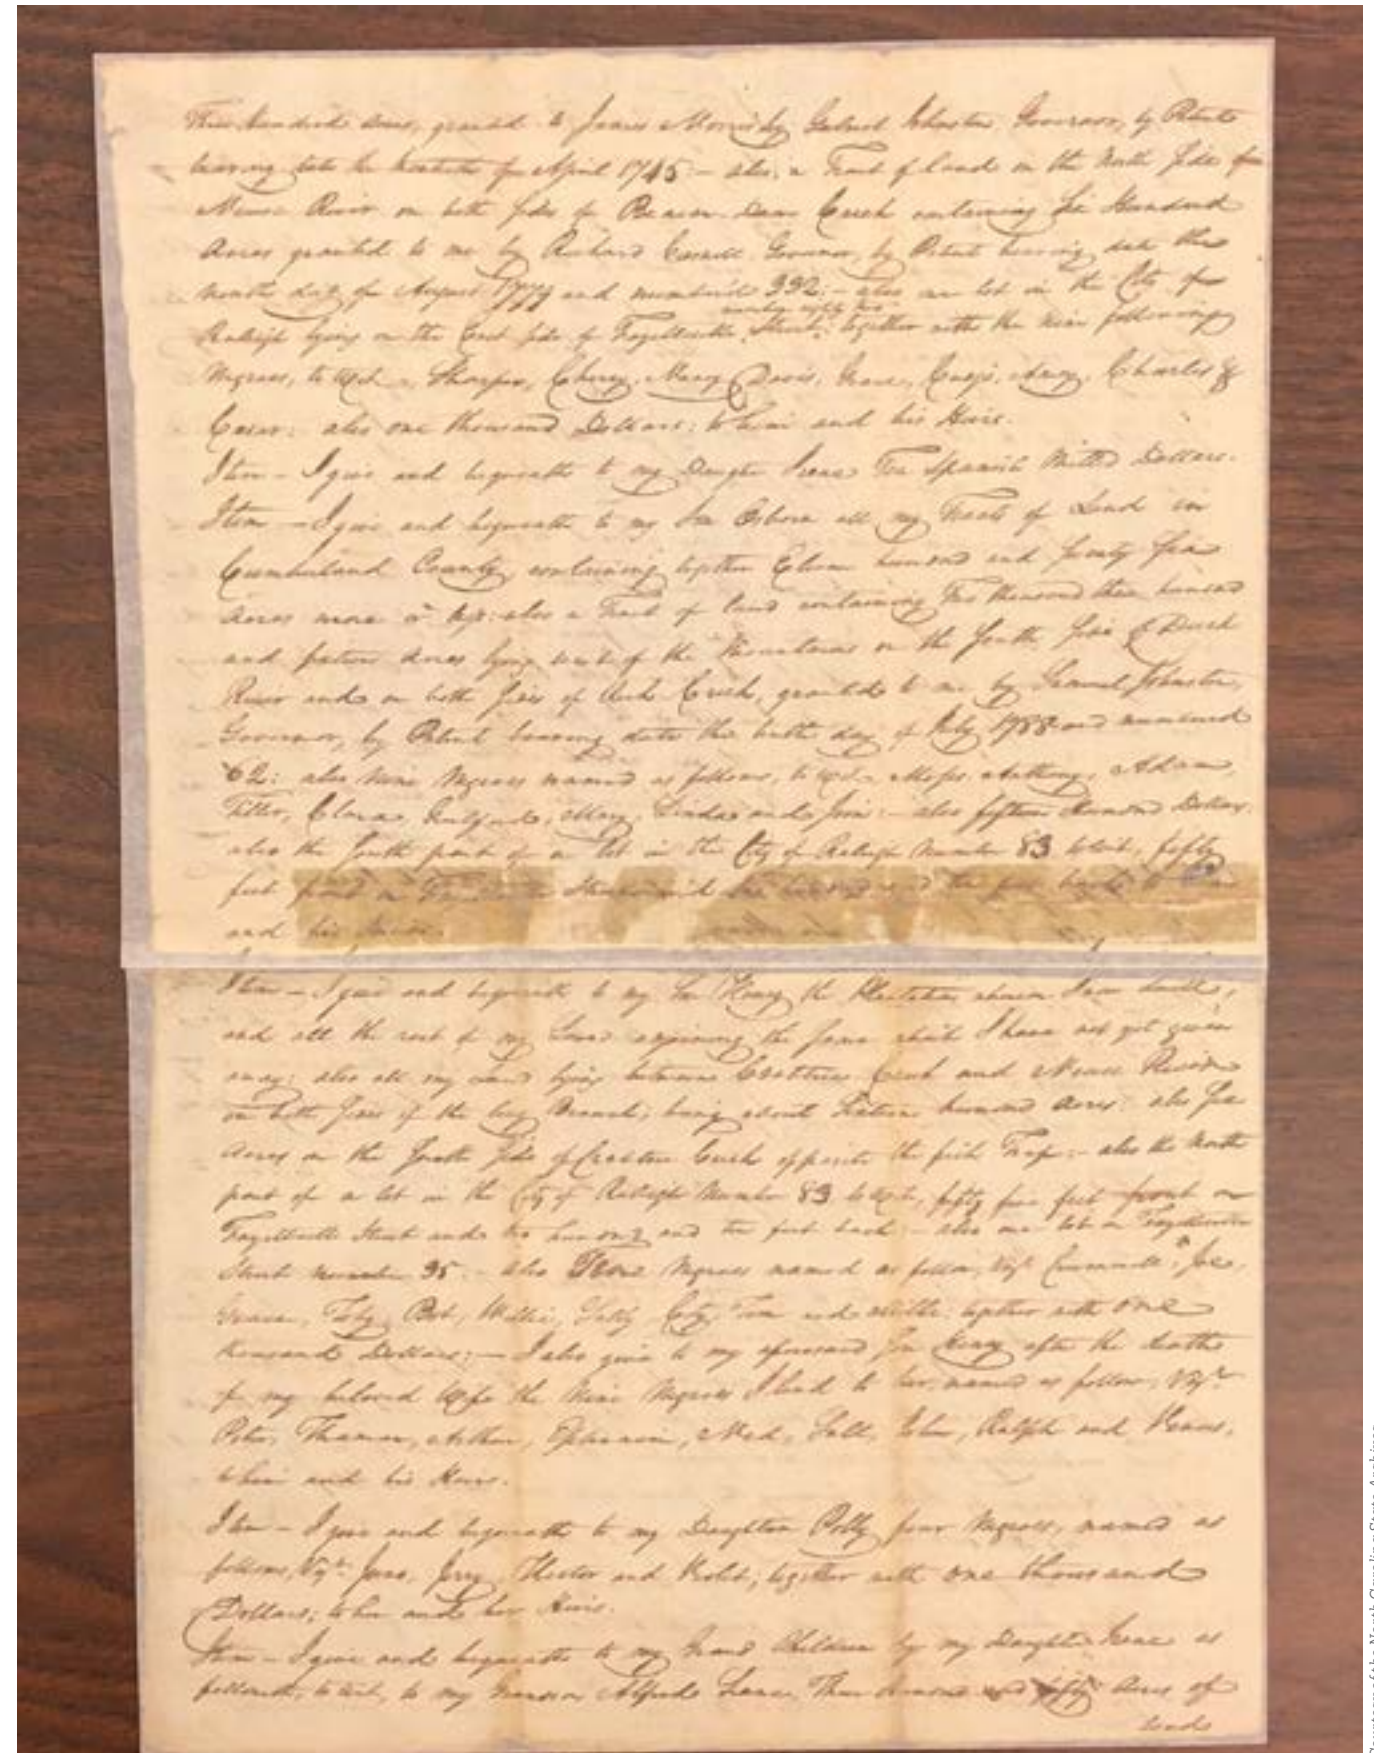 Three hundred acres, granted to James Morris by Gabriel Johnston, Governor, by Patent
bearing date the April 1745 - also, a Tract of land on the North side of
Neuse River on both sides of Beaver dam Creek containing Six Hundred
Acres granted to me by Richard Caswell Governor, by Patent bearing date the
day of August 1779 and numbered 332: - also one lot in the City of
number eighty two
Raleigh lying on the East side of Fayetteville Street; together with the nine following
Negroes, to wit, Sharper, Cherry, Mary, Davis, Grace, Amey, Charles &
Cesar: also one thousand Dollars: to him and his Heirs.
Item - I give and bequeath to my Daughter Irene Ten Spanish Milled Dollars.
Item - I give and bequeath to my Son Osborn all my Tracts of Land in
Cumberland County, containing together Eleven hundred and
acres more or less: also a Tract of land containing Two thousand three hundred
and acres lying west of the Mountains on the South side of Duck
River and on both sides of Creek, granted to me by Samuel Johnston,
Governor, by Patent bearing date the tenth day of July 1788 and numbered
62: also nine Negroes named as follows, to wit, Anthony, Adam,
Clara, Mary, Linda and - also fifteen Hundred Dollars.
also the South part of a lot in the City of Raleigh Number 83 to wit, fifty
feet front on Street and two hundred and ten feet back to him
and his heirs.
Item - I give and bequeath to my Son Henry the Plantation whereon I now dwell,
and all the rest of my Land adjoining the same which I have not yet given
away: also all my Land lying between Crabtree Creek and Neuse River
on both sides of the big Branch; being about Sixteen hundred Acres: also five
Acres on the South side of Crabtree Creek opposite the fish Trap: - also the North
part of a lot in the City of Raleigh Number 83 to wit, fifty five feet front on
Fayetteville Street and two hundred and ten feet back - also one lot on Fayetteville
Street number 95. - also Negroes named as follow, Vizt. Joe,
Grace, Toby, Bob, Willie, Tom and together with one
thousand Dollars: - I also give to my aforesaid Son Henry after the death
of my beloved Wife the Nine Negroes I lend to her, named as follow, Vizt.
Peter, Thamer, Arthur, Ephraim, Ned, John, Ralph and Venus,
to him and his Heirs.
Item - I give and bequeath to my Daughter Polly four Negroes, named as
follows, Vizt. Jerry, Hester and Violet; together with one thousand
Dollars; to her and her Heirs.
Item - I give and bequeath to my Grand Children by my Daughter Irene as
followeth, to wit, to my Grandson Alfred Lane, Three hundred and fifty Acres of
Land
Courtesy of the North Carolina State Archives